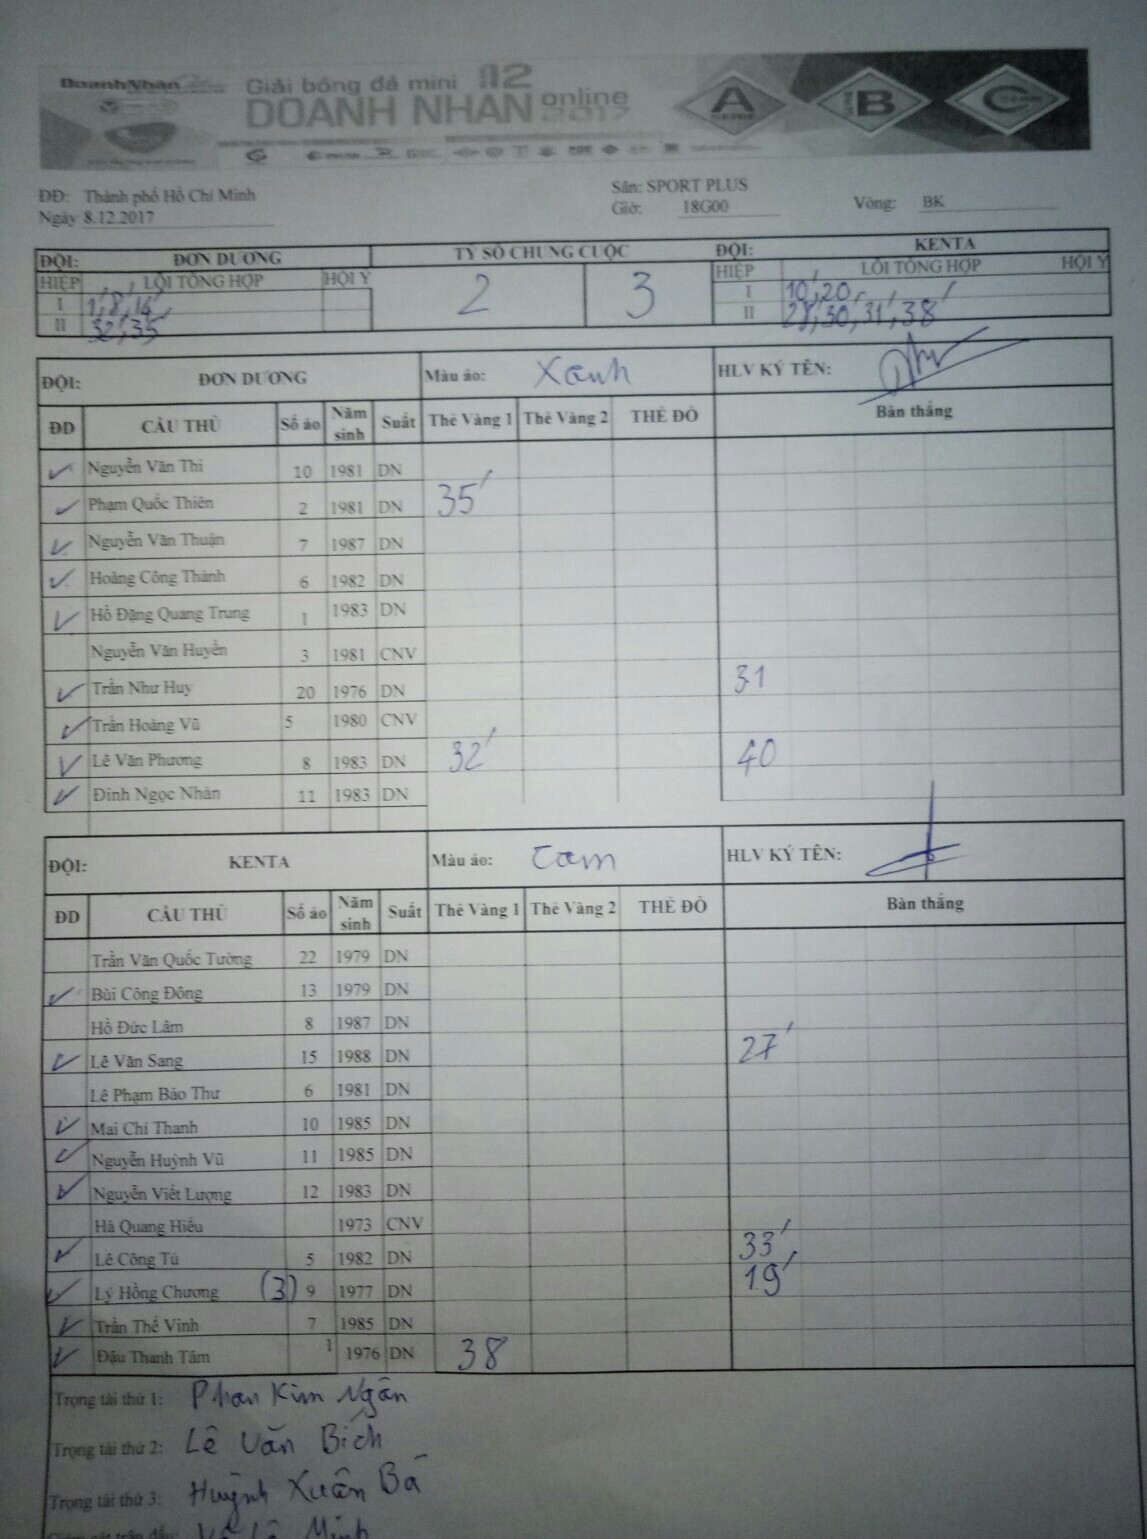 DoanhNhân
Giải bóng đá mini lần 12
DOANH NHÂN online 2017
A SERIE B C
ĐĐ: Thành phố Hồ Chí Minh Sân: SPORT PLUS
Ngày 8.12.2017 Giờ: 18G00 Vòng: BK
ĐỘI: ĐƠN DƯƠNG TỶ SỐ CHUNG CUỘC ĐỘI: KENTA
HIỆP LỖI TỔNG HỢP HỘI Ý 2 3 HIỆP LỖI TỔNG HỢP HỘI Ý
I 1', 8', 14' I 10', 20'
II 32', 35' II 28', 30', 31', 38'
ĐỘI: ĐƠN DƯƠNG Màu áo: Xanh HLV KÝ TÊN:
ĐD CẦU THỦ Số áo Năm sinh Suất Thẻ Vàng 1 Thẻ Vàng 2 THẺ ĐỎ Bàn thắng
Nguyễn Văn Thi 10 1981 DN
Phạm Quốc Thiên 2 1981 DN 35'
Nguyễn Văn Thuận 7 1987 DN
Hoàng Công Thành 6 1982 DN
Hồ Đặng Quang Trung 1 1983 DN
Nguyễn Văn Huyền 3 1981 CNV
Trần Như Huy 20 1976 DN 31
Trần Hoàng Vũ 5 1980 CNV
Lê Văn Phương 8 1983 DN 32' 40
Đinh Ngọc Nhân 11 1983 DN
ĐỘI: KENTA Màu áo: Cam HLV KÝ TÊN:
ĐD CẦU THỦ Số áo Năm sinh Suất Thẻ Vàng 1 Thẻ Vàng 2 THẺ ĐỎ Bàn thắng
Trần Văn Quốc Tường 22 1979 DN
Bùi Công Đông 13 1979 DN
Hồ Đức Lâm 8 1987 DN
Lê Văn Sang 15 1988 DN 27'
Lê Phạm Bảo Thư 6 1981 DN
Mai Chí Thanh 10 1985 DN
Nguyễn Huỳnh Vũ 11 1985 DN
Nguyễn Viết Lượng 12 1983 DN
Hà Quang Hiếu 1973 CNV
Lê Công Tú 5 1982 DN 33'
Lý Hồng Chương (3) 9 1977 DN 19'
Trần Thế Vinh 7 1985 DN
Đậu Thanh Tâm 1 1976 DN 38
Trọng tài thứ 1: Phan Kim Ngân
Trọng tài thứ 2: Lê Văn Bích
Trọng tài thứ 3: Huỳnh Xuân Bá
Giám sát trận đấu: Võ Lê Minh